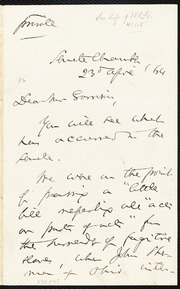 private
Senate Chamber
23d April '64
Dear Mr Garrison,
You will see what
has occurred in the
Senate.
We were on the point
of passing a "little
bill repealing all "acts
or parts of acts" for
the surrender of fugitive
slaves, when John Sher-
man of Ohio inter-